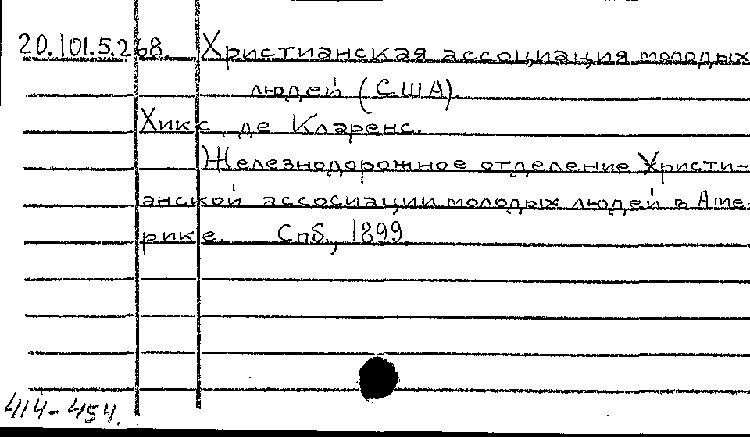 20.101.5.268. Христианская ассоциация молодых
людей (США).
Хикс, де Кларенс.
Железнодорожное отделение Христи-
анской ассосиации молодых людей в Аме-
рике. Спб., 1899.
414-454.